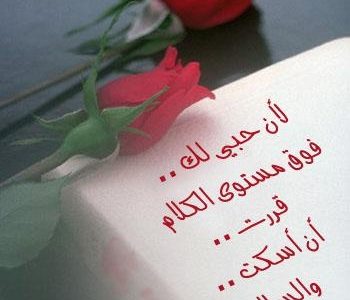 لأن حبي لك..
فوق مستوى الكلام
قررت..
أن أسكت..